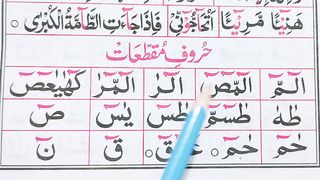 هَنِيْٓـًٔا مَّرِيْٓـًٔا اَتُحَآجُّوْٓنِّيْ فَاِذَا جَآءَتِ الطَّآمَّةُ الْكُبْرٰى ○
حُرُوفِ مُقَطَّعَات
الٓمّٓ الٓمّٓصٓ الٓرٰ الٓمّٓرٰ كٓهٰيٰعٓصٓ
طٰهٰ طٰسٓمّٓ طٰسٓ يٰسٓ صٓ
حٰمٓ حٰمٓ ○ عٓسٓقٓ ○ قٓ نٓ